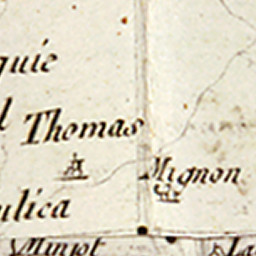 quie
l Thomas
Mignon
ulica
Minjot
La